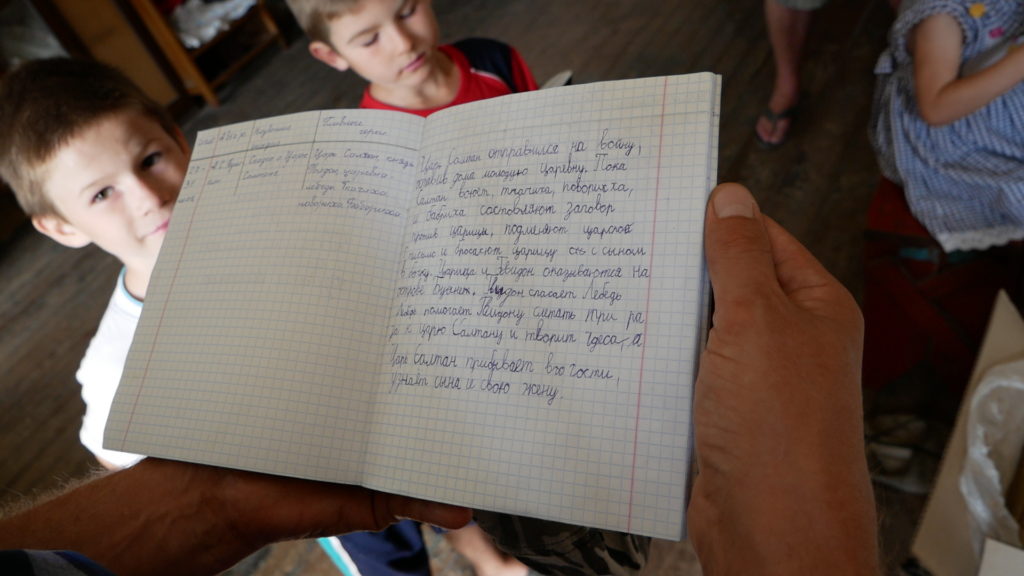 Название
Главные
герои
Сказка о царе
Салтане
Царь Салтан, князь
Гвидон, царевна
лебедь, Ткачиха,
повариха, Бабариха
Царь Салтан отправился на войну,
оставив дома молодую царевну. Пока
Салтан воюет, ткачиха, повариха,
и Бабриха составляют заговор
против царицы, подменяют царское
письмо и бросают царицу с сыном
в бочку. Царица и Гвидон оказываются на
острове Буянек. Гвидон спасает Лебедь
Лебедь помогает Гвидону слетать три ра
за к царю Салтану и творит чудеса, а
Царь Салтан прибывает в гости,
узнаёт сына и свою жену.